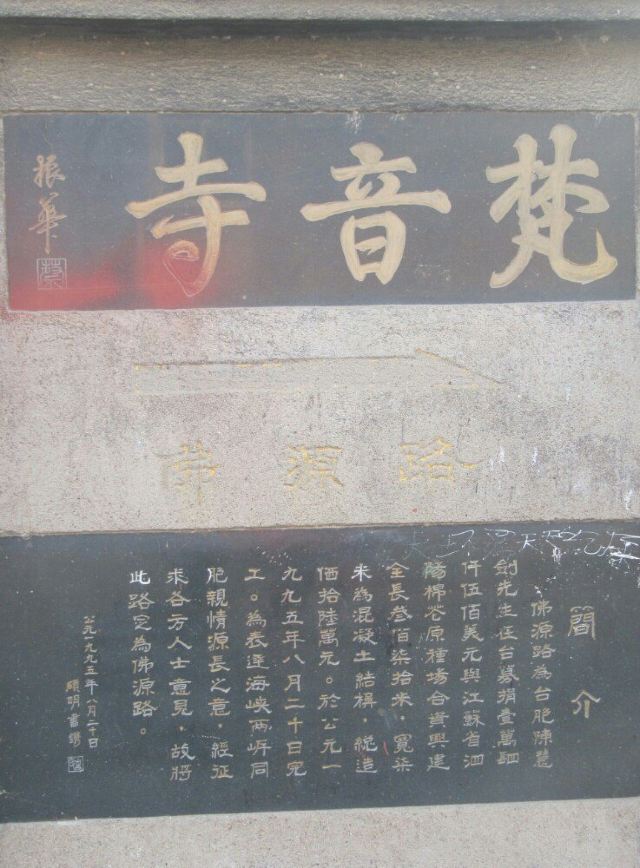 梵音寺
振華
佛源路
簡介
佛源路為台胞陳慧
劍先生在台募捐壹萬肆
仟伍佰美元與江蘇省泗
陽棉花原種場合資興建
全長叁佰柒拾米，寬柒
米為混凝土結構，総造
価拾陸萬元。於公元一
九九五年八月二十日完
工。為表達海峽兩岸同
胞親情源長之意，經征
求各方人士意見，故將
此路定為佛源路。
公元一九九五年八月二十日
顧明書鐫